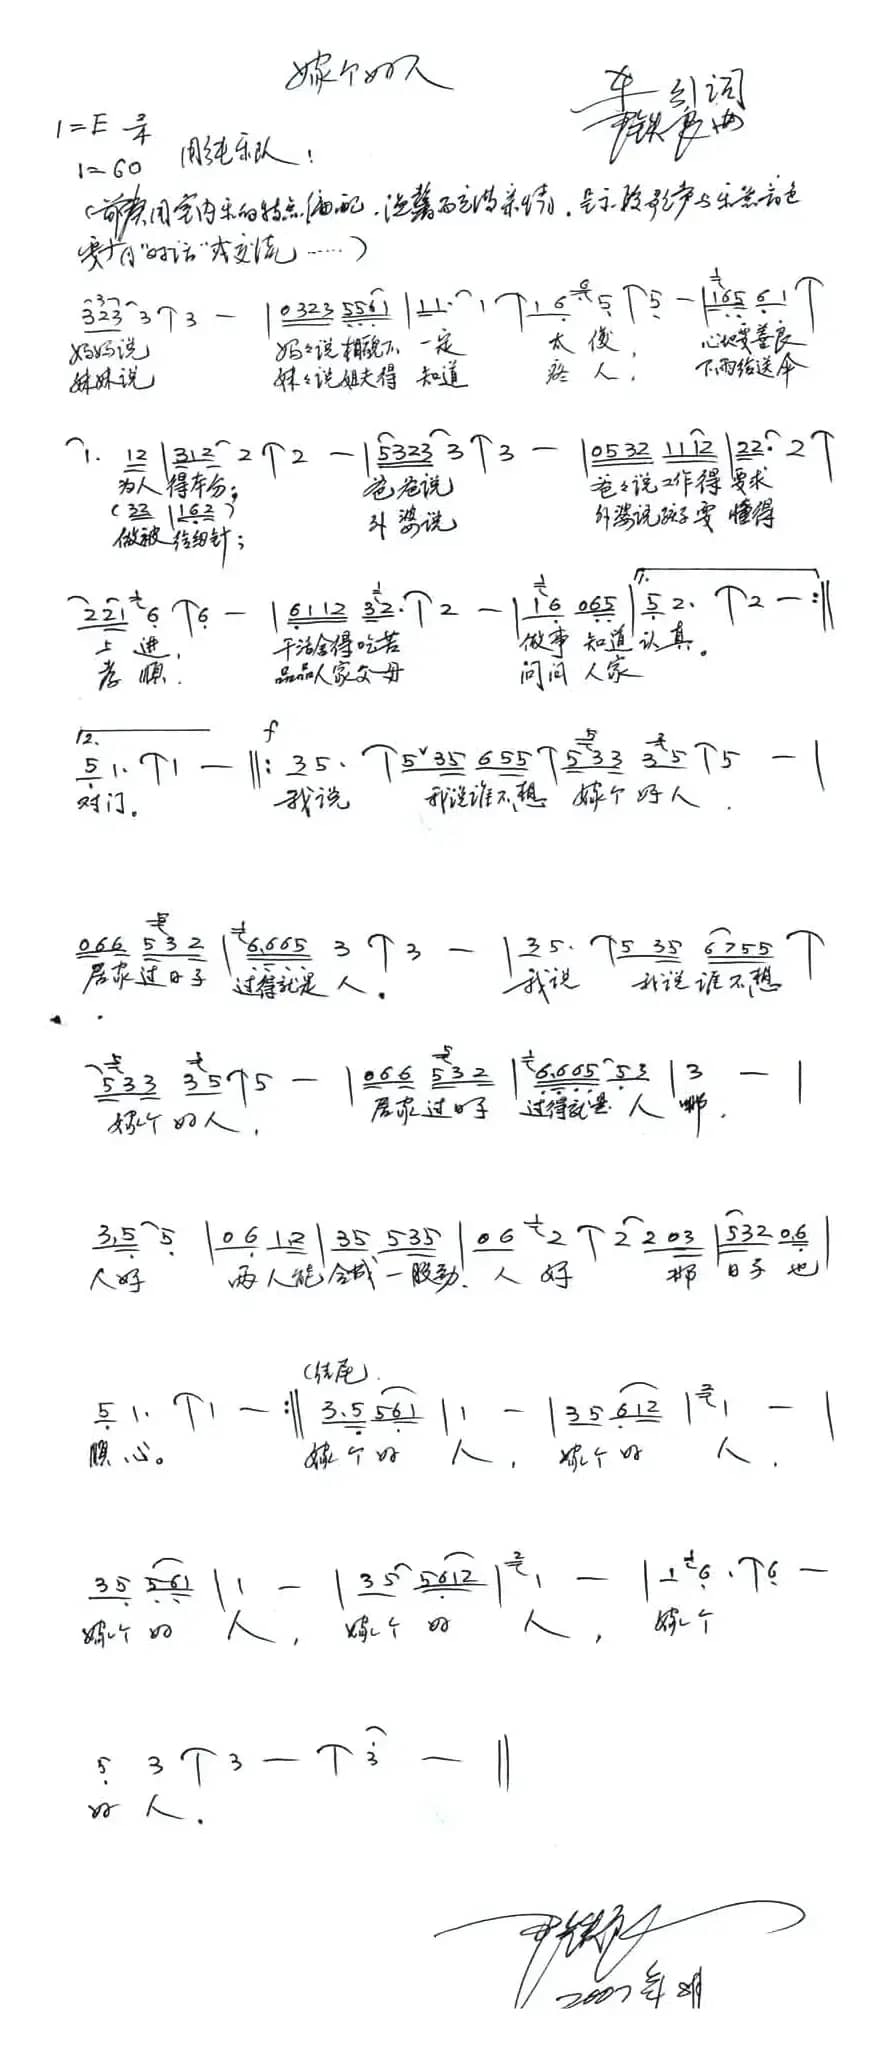 嫁个好人
车 行词
尹铁良曲
1=E 2/4
1=60 用纯乐队！
323 3 3 — | 0323 5561 | 11· 1 16 5 5 — | 165 61
妈妈说 妈妈说相貌不一定 太俊， 心地要善良
妹妹说 妹妹说姐夫得知道 疼人， 下雨给送伞
1· 12 | 312 2 2 — | 5323 3 3 — | 0532 1112 | 22· 2
为人得本分； 爸爸说 爸爸说工作得要求
(32 | 162)
做被给纫针； 外婆说 外婆说孩子要懂得
221 6 6 — | 6112 32· 2 — | 16 065 | 1. 52· 2 — :‖
上进， 干活舍得吃苦 做事知道认真。
孝顺． 品品人家父母 问问人家
2. f
51· 1 — ‖: 35· 5 35 655 533 35 5 — |
对门。 我说 我说谁不想 嫁个好人．
066 532 | 6.665 3 3 — | 35· 5 35 6755
居家过日子 过得就是人． 我说 我说谁不想
533 35 5 — | 066 532 | 6.665 53 | 3 — |
嫁个好人， 居家过日子 过得就是人 哪．
3.5 5 | 06 1.2 | 35 535 | 06 2 2 2 03 | 532 0.6 |
人好 两人能合成一股劲． 人好 那 日子也
(结尾)
51· 1 — :‖ 3.5 561 | 1 — | 35 612 | 1 — |
顺心。 嫁个好人， 嫁个好人．
35 561 | 1 — | 35 5612 | 1 — | 16· 6 —
嫁个好人， 嫁个好人， 嫁个
5 3 3 — 3 — ‖
好人．
尹铁良
2007年